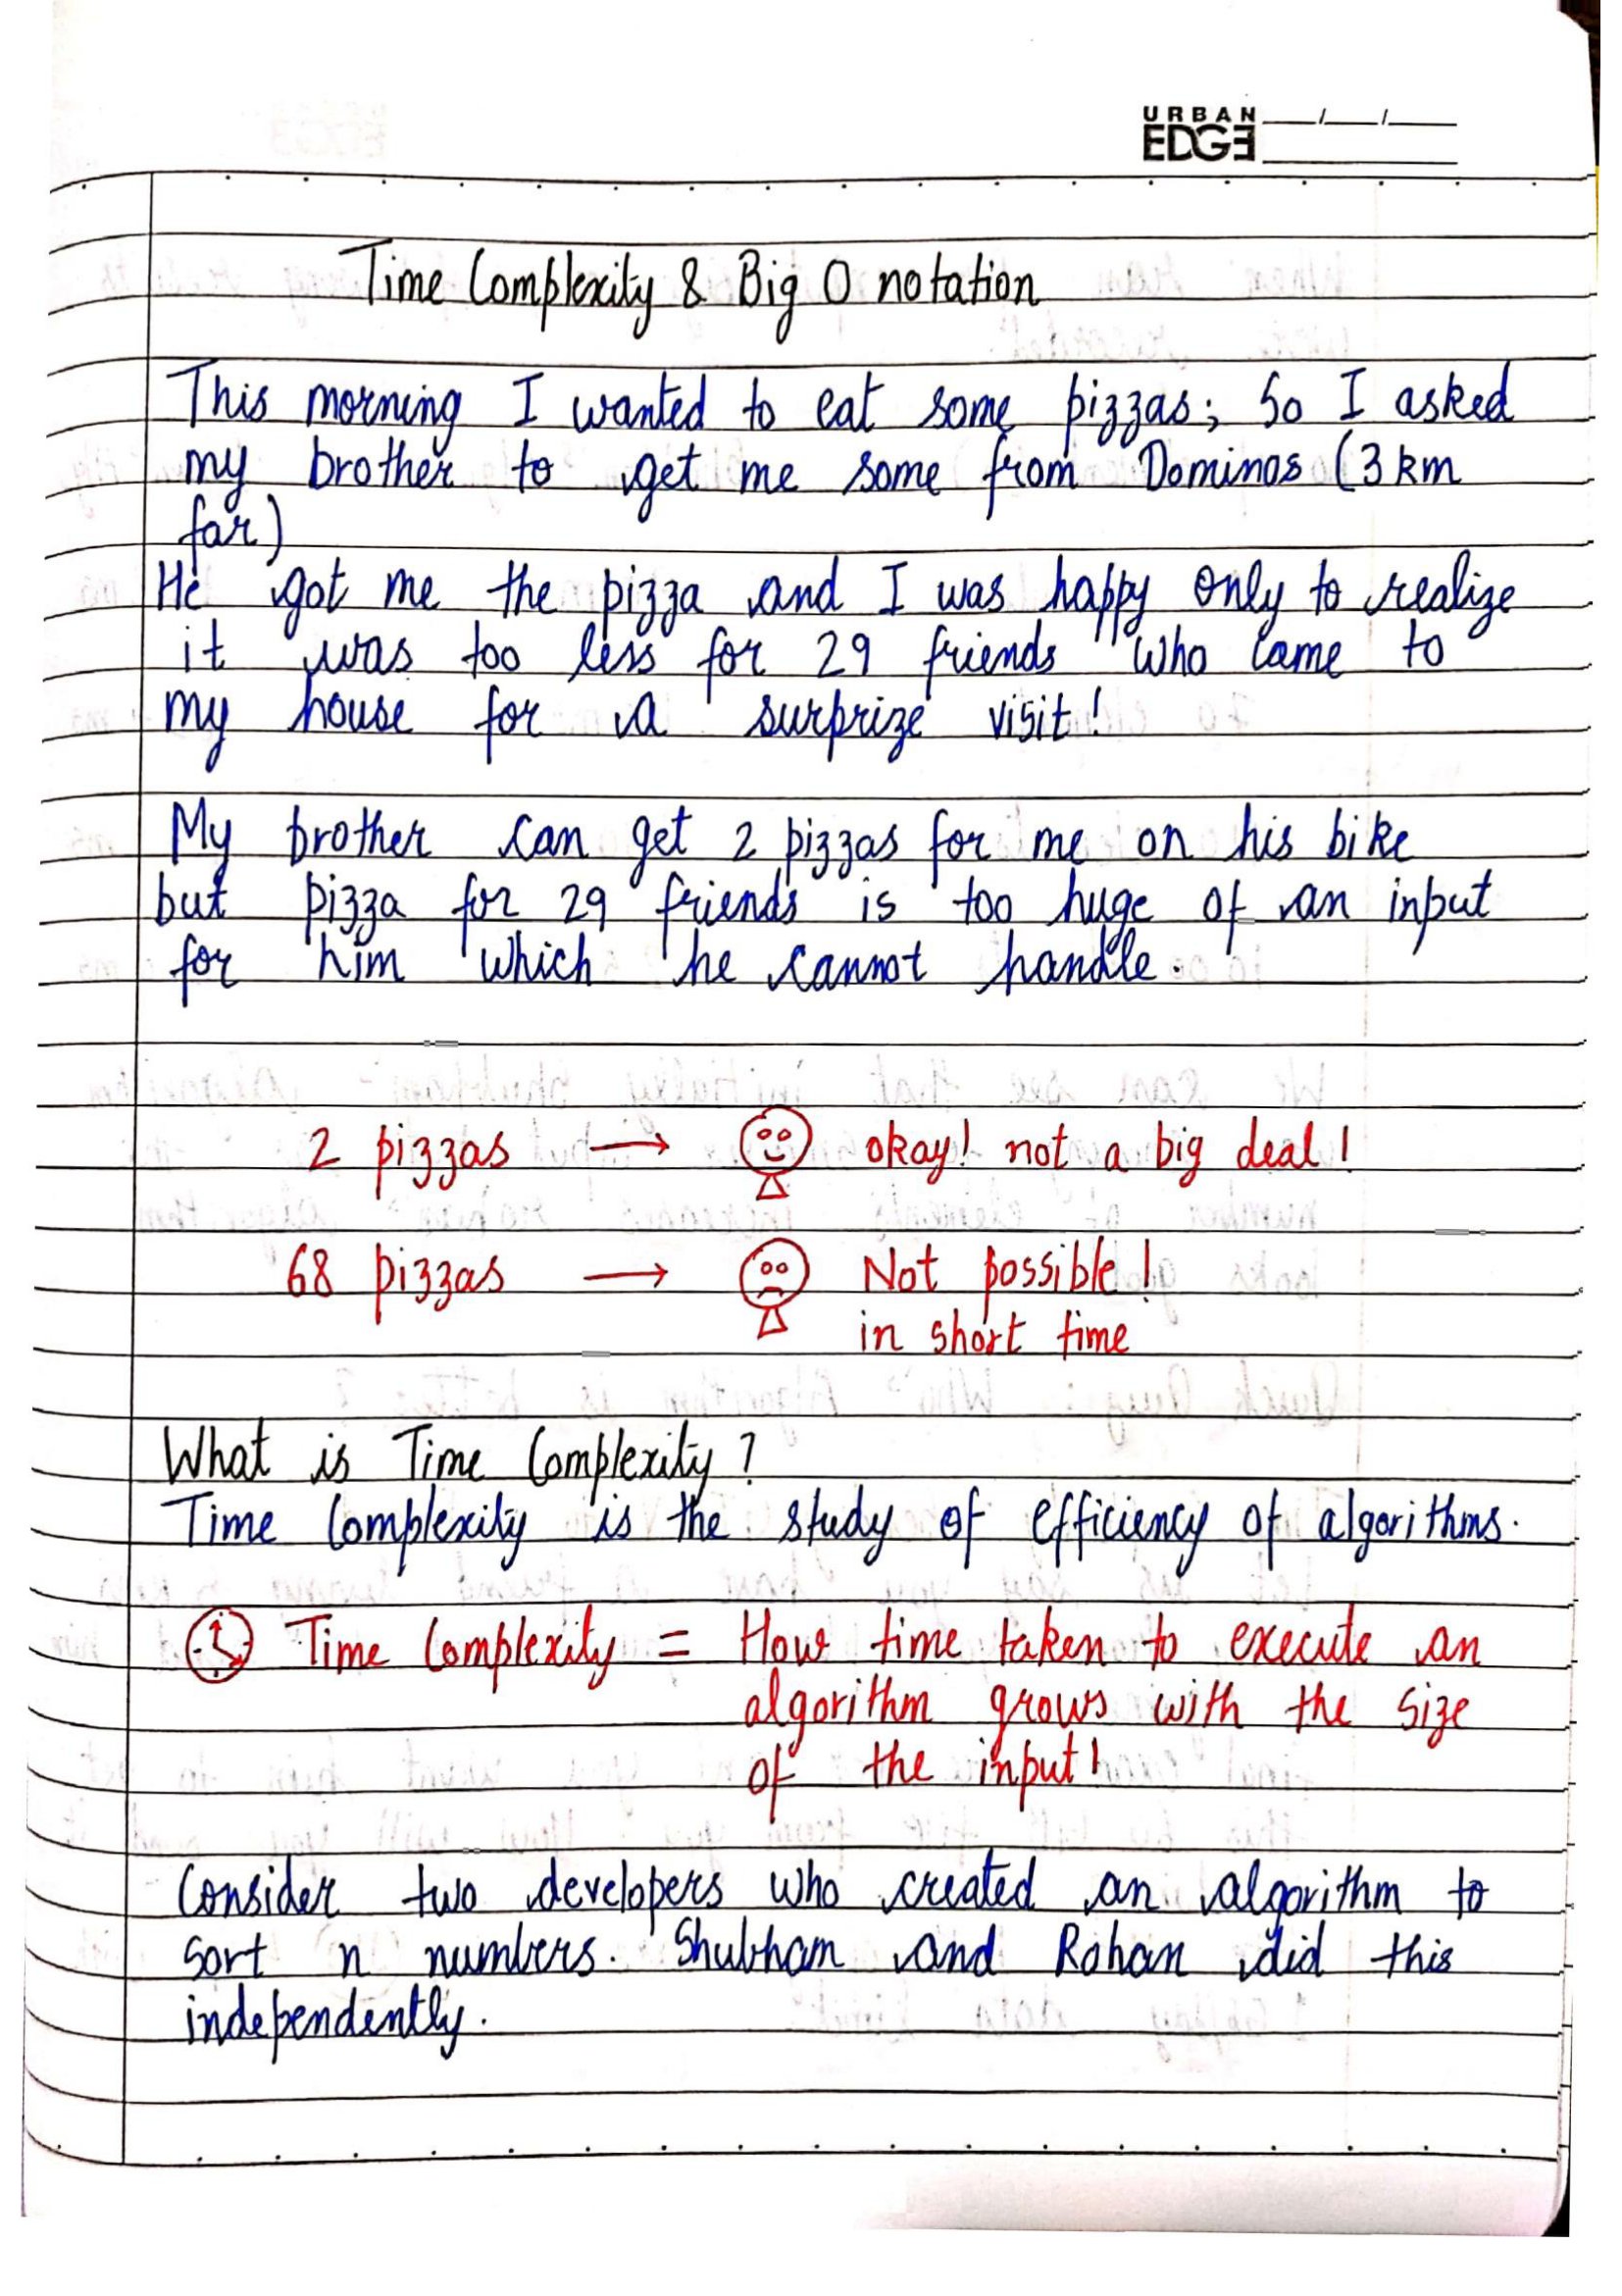 URBAN
EDGE
Time Complexity & Big O notation
This morning I wanted to eat some pizzas; So I asked
my brother to get me some from Dominos (3 km
far)
He got me the pizza and I was happy only to realize
it was too less for 29 friends who came to
my house for a surprize visit!
My brother can get 2 pizzas for me on his bike
but pizza for 29 friends is too huge of an input
for him which he cannot handle.
2 pizzas → okay! not a big deal!
68 pizzas → Not possible!
in short time
What is Time Complexity?
Time Complexity is the study of efficiency of algorithms.
Time Complexity = How time taken to execute an
algorithm grows with the size
of the input!
Consider two developers who created an algorithm to
sort n numbers. Shubham and Rohan did this
independently.